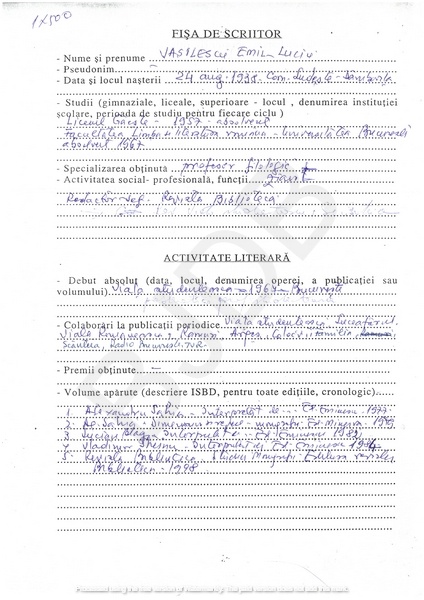 1x500
FIŞA DE SCRIITOR
- Nume şi prenume VASILESCU EMIL Luciu
- Pseudonim
- Data şi locul naşterii 24 aug. 1938 Com. Ludeşti - Dâmboviţa
- Studii (gimnaziale, liceale, superioare - locul , denumirea instituţiei
şcolare, perioada de studiu pentru fiecare ciclu )
Liceul Găeşti - 1957 - absolvent
Facultatea Limba şi literatura română - Universitatea Bucureşti
absolvit 1967
- Specializarea obţinută profesor filologie
- Activitatea social- profesională, funcţii
Redactor şef. Revista Biblioteca
ACTIVITATE LITERARĂ
- Debut absolut (data, locul, denumirea operei, a publicaţiei sau
volumului) Viaţa studenţească - 1967 - Bucureşti
- Colaborări la publicaţii periodice Viaţa studenţească, Luceafărul,
Viaţa Românească, Ramuri, Argeş, Familia,
Scânteia, Radio Bucureşti, TVR
- Premii obţinute
- Volume apărute (descriere ISBD, pentru toate ediţiile, cronologic)
1. Alexandru Sahia - Interpretat de --- Ed. Eminescu 1977
2. Al. Sahia - Ed. Minerva
3. Lucian Blaga Interpretat Ed. Eminescu 1981
4. Vladimir Streinu Interpretat Ed. Eminescu 1984
5. Revista Biblioteca Editura revistei
Biblioteca - 1998